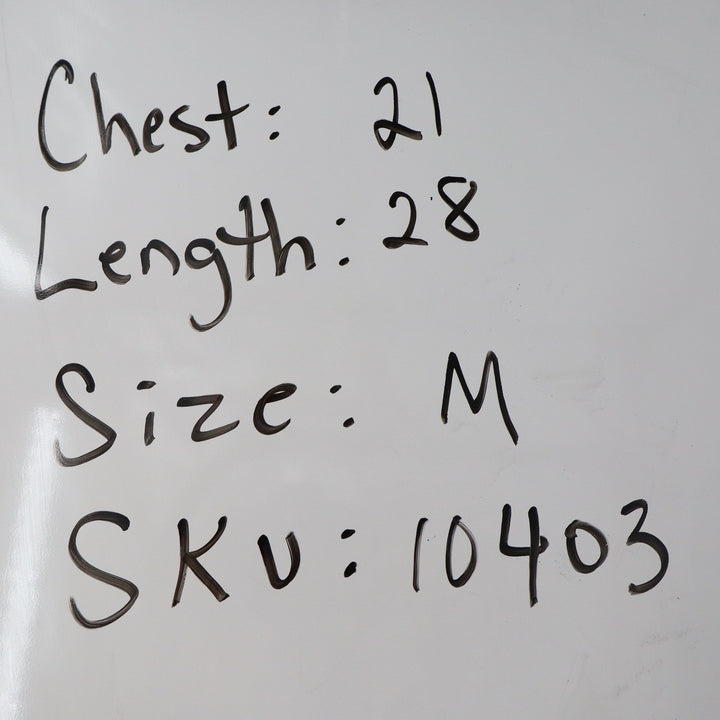 Chest: 21
Length: 28
Size: M
SKU: 10403